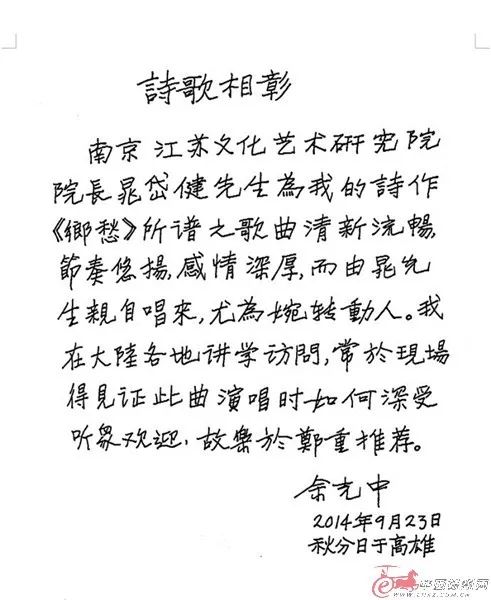 詩歌相彰
南京江苏文化艺术研究院
院長晁岱健先生為我的詩作
《鄉愁》所谱之歌曲清新流暢,
節奏悠揚,感情深厚,而由晁先
生親自唱來,尤為婉转動人。我
在大陸各地讲学访問,常於現場
得見证此曲演唱时如何深受
听眾欢迎,故樂於鄭重推荐。
余光中
2014年9月23日
秋分日于高雄